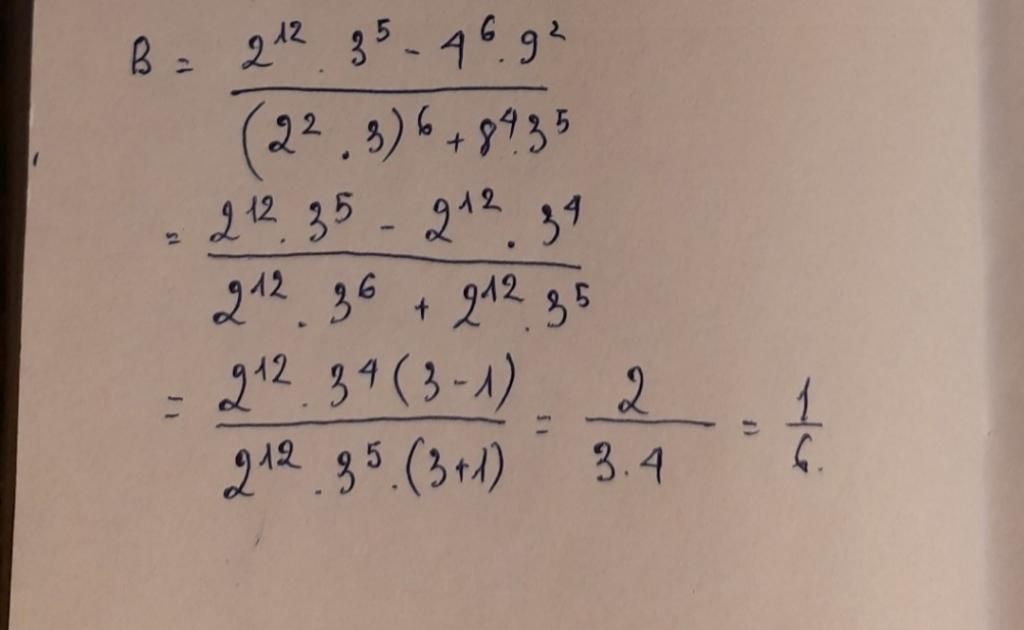 B = (2¹² . 3⁵ - 4⁶ . 9²) / ((2² . 3)⁶ + 8⁴ . 3⁵)
= (2¹² . 3⁵ - 2¹² . 3⁴) / (2¹² . 3⁶ + 2¹² . 3⁵)
= (2¹² . 3⁴ (3 - 1)) / (2¹² . 3⁵ . (3 + 1)) = 2 / (3 . 4) = 1 / 6.